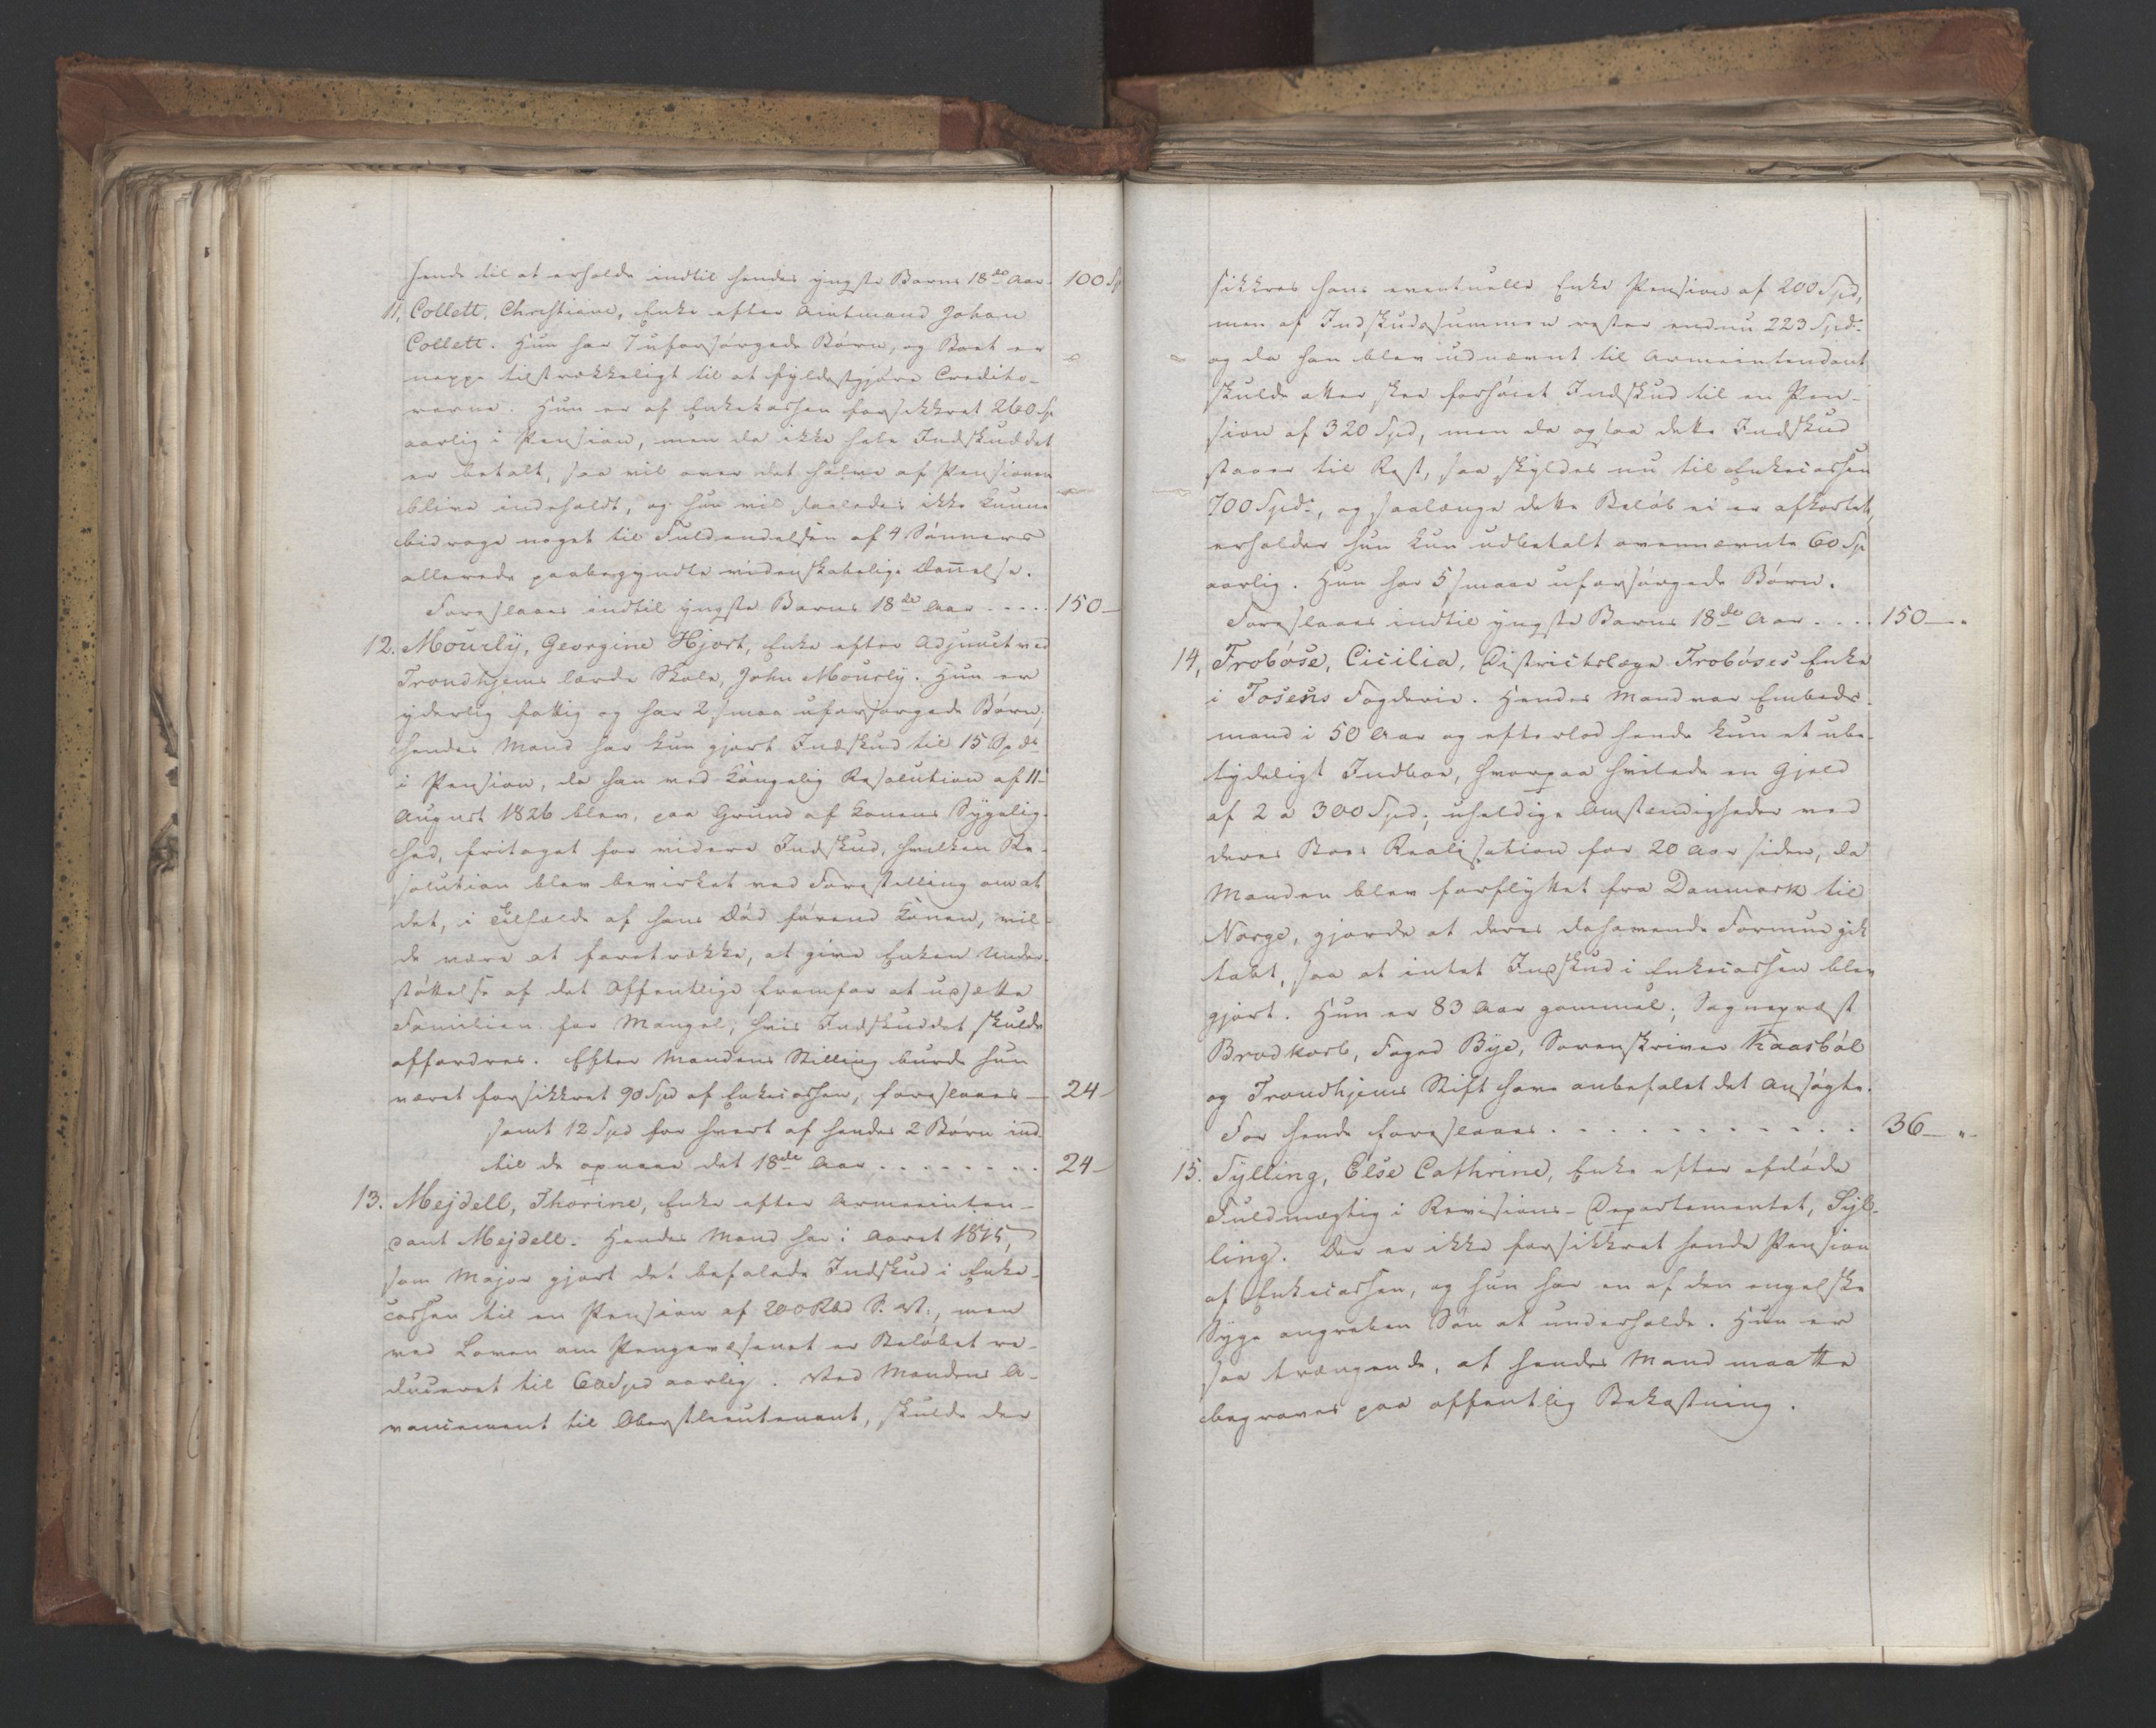 hende til at erholde indtil hendes yngste Barns 18de Aar. 100 Sp
11, Collett, Christiane, Enke efter Amtmand Johan
Collett. Hun har 7 uforsørgede Børn, og Boet er
neppe tilstrækkeligt til at fyldestgjøre Credito-
rerne. Hun er af Enkekassen forsikkret 260 Sp
aarlig i Pension, men da ikke hele Indskuddet
er betalt, saa vil over det halve af Pensionen
blive indeholdt, og hun vil saaledes ikke kunne
bidrage noget til Fuldendelsen af 4 Sønners
allerede paabegyndte videnskabelige Dannelse.
Foreslaaes indtil yngste Barns 18de Aar ..... 150 —
12. Mourly, Georgine Hjort, Enke efter Adjunct ved
Trondhjems lærde Skole, John Mourly. Hun er
yderlig fattig og har 2 smaa uforsørgede Børn;
hendes Mand har kun gjort Indskud til 15 Spd
i Pension, da han ved Kongelig Resolution af 11
August 1826 blev, paa Grund af Konens Sygelig-
hed, fritaget for videre Indskud, hvilken Re-
solution blev bevirket ved Forestilling om at
det, i Tilfælde af hans Død førend Konen, vil-
de være at foretrække, at give Enken Under-
støttelse af det Offentlige fremfor at udsætte
Familien for Mangel, hvis Indskuddet skulde
affordres. Efter Mandens Stilling burde hun
været forsikkret 90 Spd af Enkecassen, foreslaaes — 24 —
samt 12 Spd for hvert af hendes 2 Børn ind-
til de opnaae det 18de Aar ........ 24 —
13. Mejdell, Thorine, Enke efter Armeeinten-
dant Mejdell. Hendes Mand har i Aaret 1815,
som Major gjort det befalede Indskud i Enke-
cassen til en Pension af 200 Rbd S. V., men
ved Loven om Pengevæsenet er Beløbet re-
duceret til 60 Spd aarlig. Ved Mandens A-
vancement til Oberstlieutenant, skulde der
sikkres hans eventuelle Enke Pension af 200 Spd,
men af Indskudssummen rester endnu 223 Spd.
og da han blev udnævnt til Armeeintendant
skulde atter skee forhøiet Indskud til en Pen-
sion af 320 Spd, men da ogsaa dette Indskud
staaer til Rest, saa skyldes nu til Enkecassen
700 Spd., og saalænge dette Beløb ei er afkortet,
erholder hun kun udbetalt ovennævnte 60 Sp
aarlig. Hun har 5 smaae uforsørgede Børn.
Foreslaaes indtil yngste Barns 18de Aar .... 150 —
14, Frobøse, Cicilia, Districtslæge Frobøses Enke
i Fosens Fogderie. Hendes Mand var Embeds-
mand i 50 Aar og efterlod hende kun et ube-
tydeligt Indboe, hvorpaa hvilede en Gjeld
af 2 a 300 Spd; uheldige Omstændigheder ved
deres Boes Realisation for 20 Aar siden, da
Manden blev forflyttet fra Danmark til
Norge, gjorde at deres dahavende Formue gik
tabt, saa at intet Indskud i Enkecassen blev
gjort. Hun er 83 Aar gammel; Sognepræst
Brodkorb, Foged Bye, Sorenskriver Kaasbøl
og Trondhjems Stift have anbefalet det Ansøgte.
For hende foreslaaes ............ 36 — "
15. Sylling, Else Cathrine, Enke efter afdøde
Fuldmægtig i Revisions-Departementet, Syl-
ling. Der er ikke forsikkret hende Pension
af Enkecassen, og hun har en af den engelske
Syge angreben Søn at underholde. Hun er
saa trængende, at hendes Mand maatte
begraves paa offentlig Bekostning.